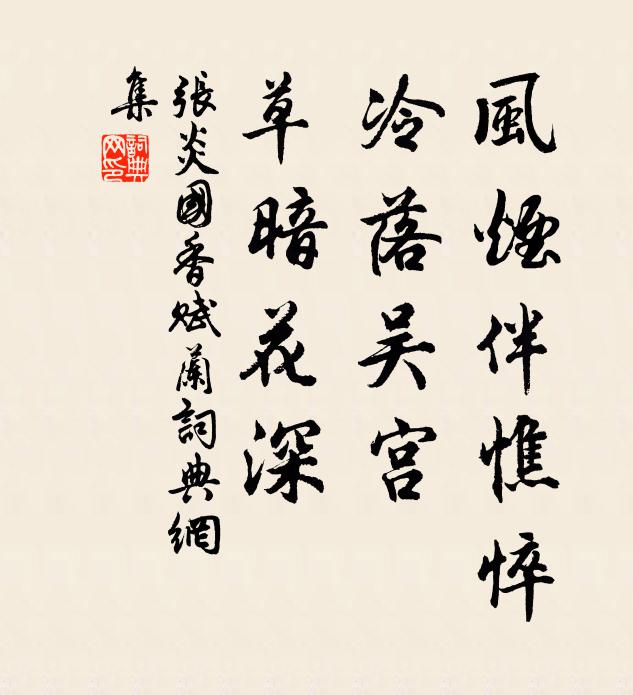 風煙伴憔悴
冷落吴宫
草暗花深
張炎國香賦蘭詞典網
集
詞典
网印